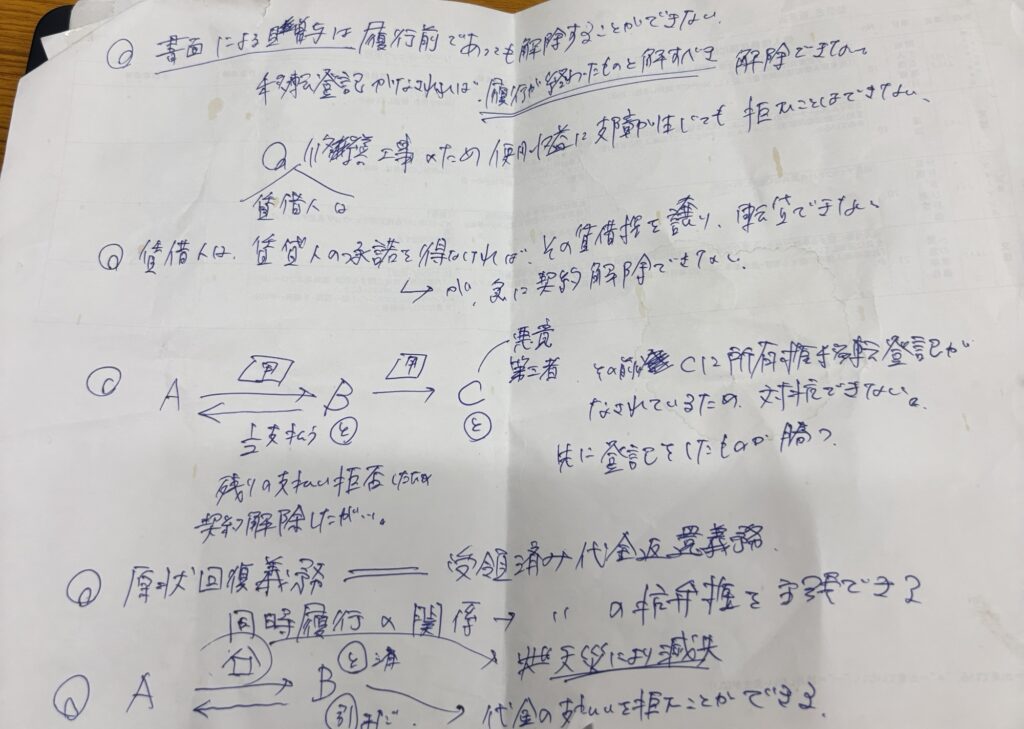 Q 書面による贈与は履行前であっても解除することができない。
移転登記がなされれば、履行が終わったものと解すべき 解除できない
Q 修繕工事のため使用収益に支障が生じても拒むことはできない、
賃借人は
Q 賃借人は、賃貸人の承諾を得なければ、その賃借権を譲り、転貸できない
↳ が、急に契約解除できない。
悪意
第三者
Q A 甲 B 甲 C
1/2支払う と と
その前に Cに所有権移転登記が
なされているため、対抗できない。
先に登記をしたものが勝つ。
残りの支払い拒否したため
契約解除したがい。
Q 原状回復義務 受領済み代金返還義務
同時履行の関係 → 〃 の抗弁権を主張できる
と済
天災により滅失
Q A B
引まだ、 代金の支払いを拒むことができる。